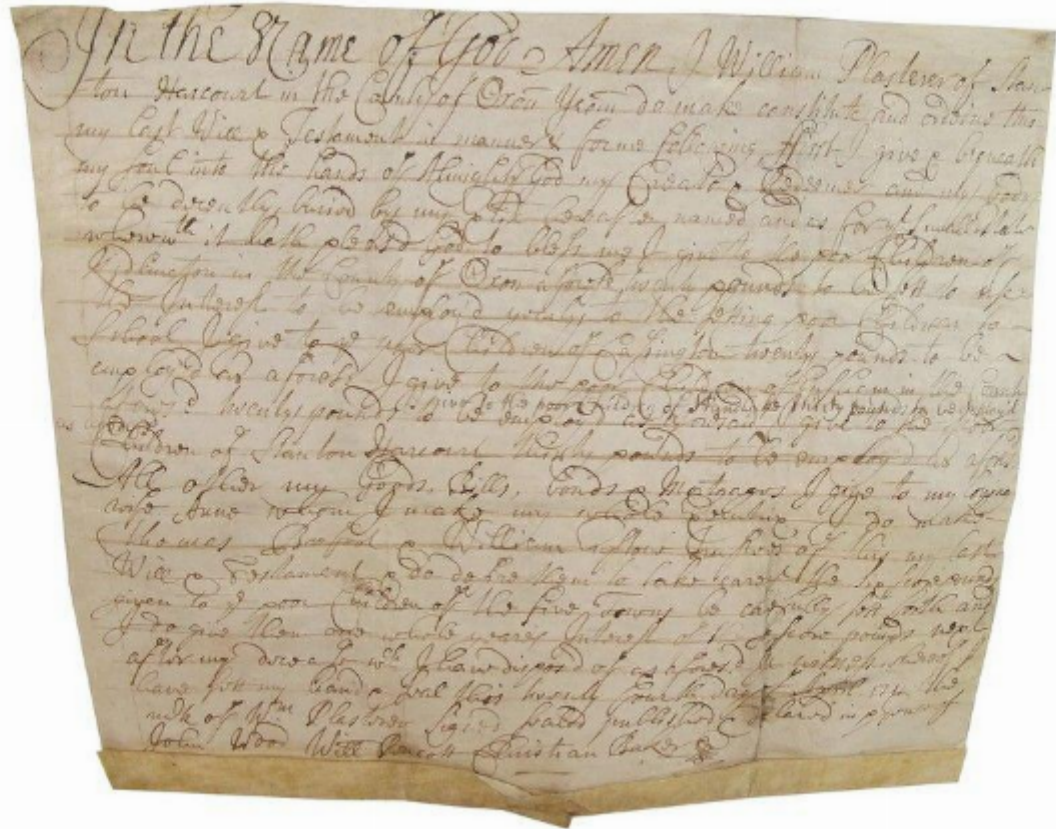 In the Name of God Amen I William Plasterer of Stan
ton Harcourt in the County of Oxon Yeom do make constitute and ordeine this
my last Will & Testament in manner & forme following, First I give & bequeath
my soul into the hands of Almighty God my Creator & Redeemer and my body
to be decently buried by my hereafter named and as for yt small
wherewth it hath pleased God to bless me I give to the poor Children of
in the County of Oxon aforesd twenty pounds to be sett to use
the Interest to be employd yearly to the setting poor Children to
School I give to ye poor Children of Cassington twenty pounds to be
employ'd as aforesd I give to the poor Children of in the County
aforesd twenty pounds to be employd as aforesd I give to the poor
I give to the poor Childrn of Handb twenty pounds to be employd
as afo
Children of Stanton Harcourt thirty pounds to be employ'd as aforesd
All other my Goods, Bills, bonds & Mortgages I give to my
wife Anne whom I make my whole Executrix I do make
Thomas & William of this my last
Will & Testament & do desire them to take care the six score pounds
given to ye poor Children of the five Towns be carefully sett forth and
I do give them one whole years Interest of the six score pounds next
after my decease wch I have disposd of as aforesd In witness whereof I
have sett my hand & seal this twenty fourth day of April the
mk of Wm Plasterer Signed sealed published & declared in
John Wood Will Christian Baker